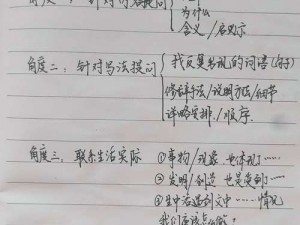 是什么
角度一：针对内容提问 为什么
含义/启示
角度二：针对写法提问 找反复出现的词语(句子)
修辞手法/说明方法/细节
详略安排/顺序
角度三：联系生活实际 ①事物/现象 也体现了……
②发明/创造 也是受到……
③生活中遇到文中……情况
我们应该怎么做？